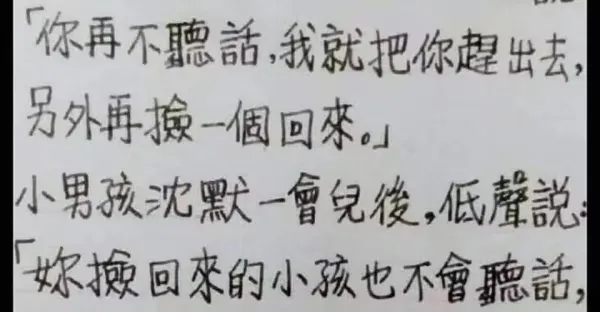 「你再不聽話,我就把你趕出去,
另外再撿一個回來。」
小男孩沈默一會兒後,低聲說:
「妳撿回來的小孩也不會聽話,